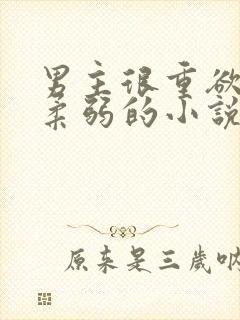 男主很重欲
柔弱的小說
原来是三歲吶